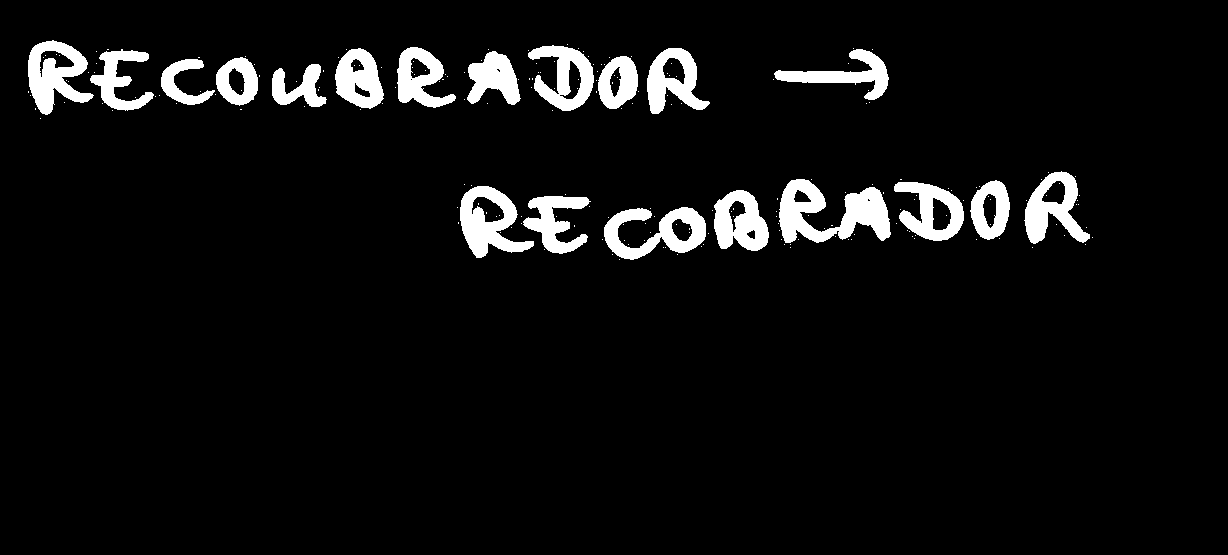 RECOUBRADOR →
RECOBRADOR